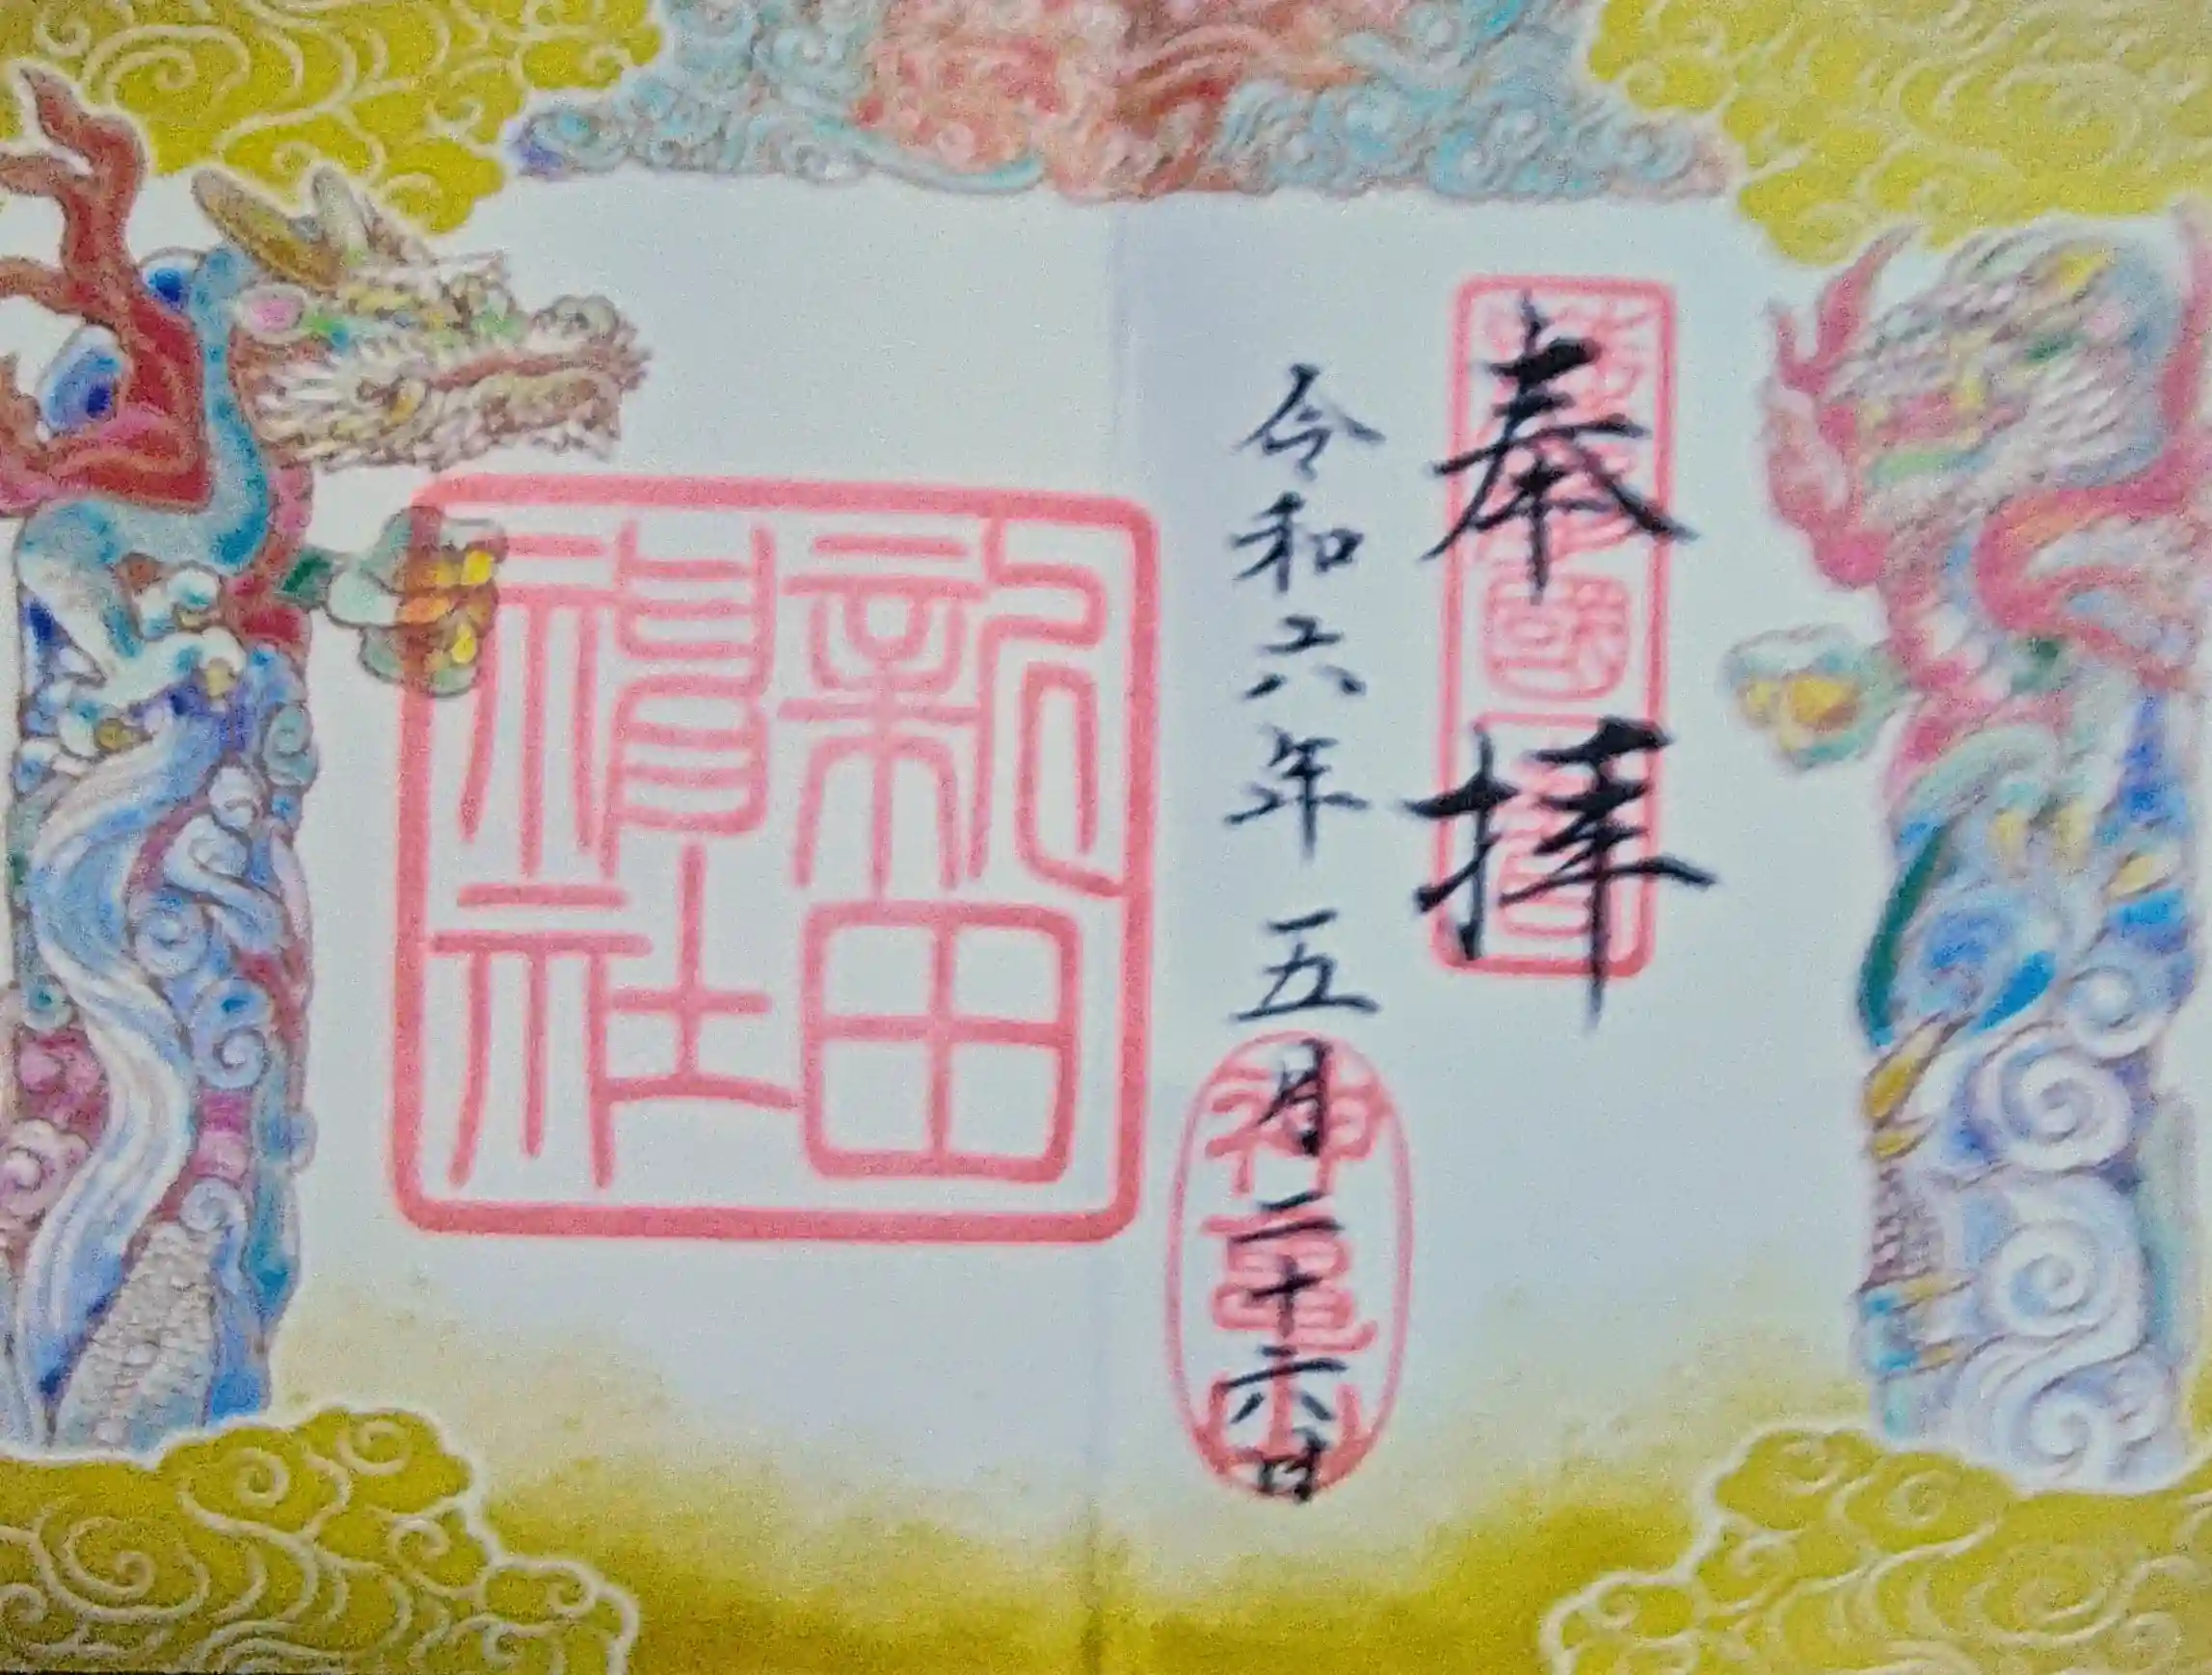 奉拝
令和六年五月二十六日
新田
神社
神亀山